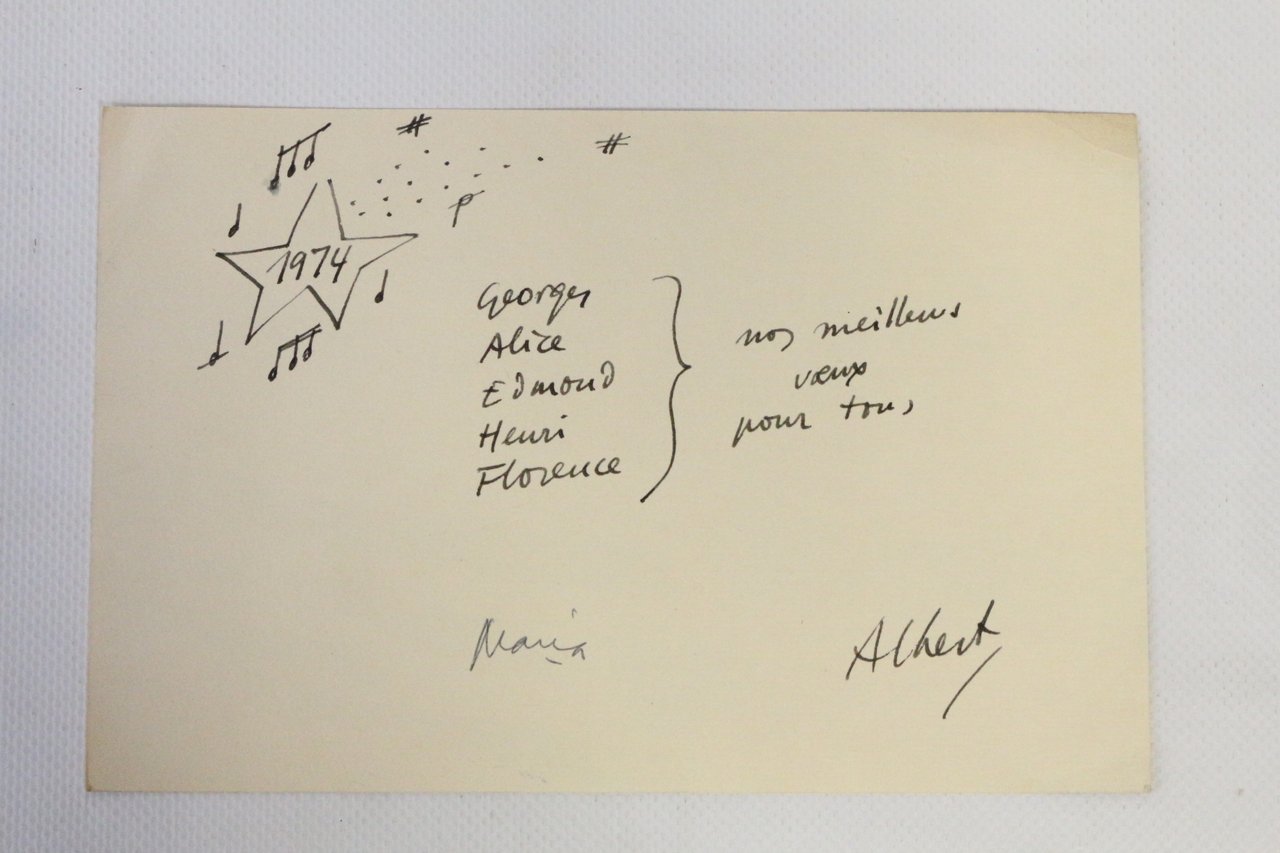 1974
Georges
Alice
Edmond
Henri
Florence
nos meilleurs
vœux
pour tous
Maria
Albert